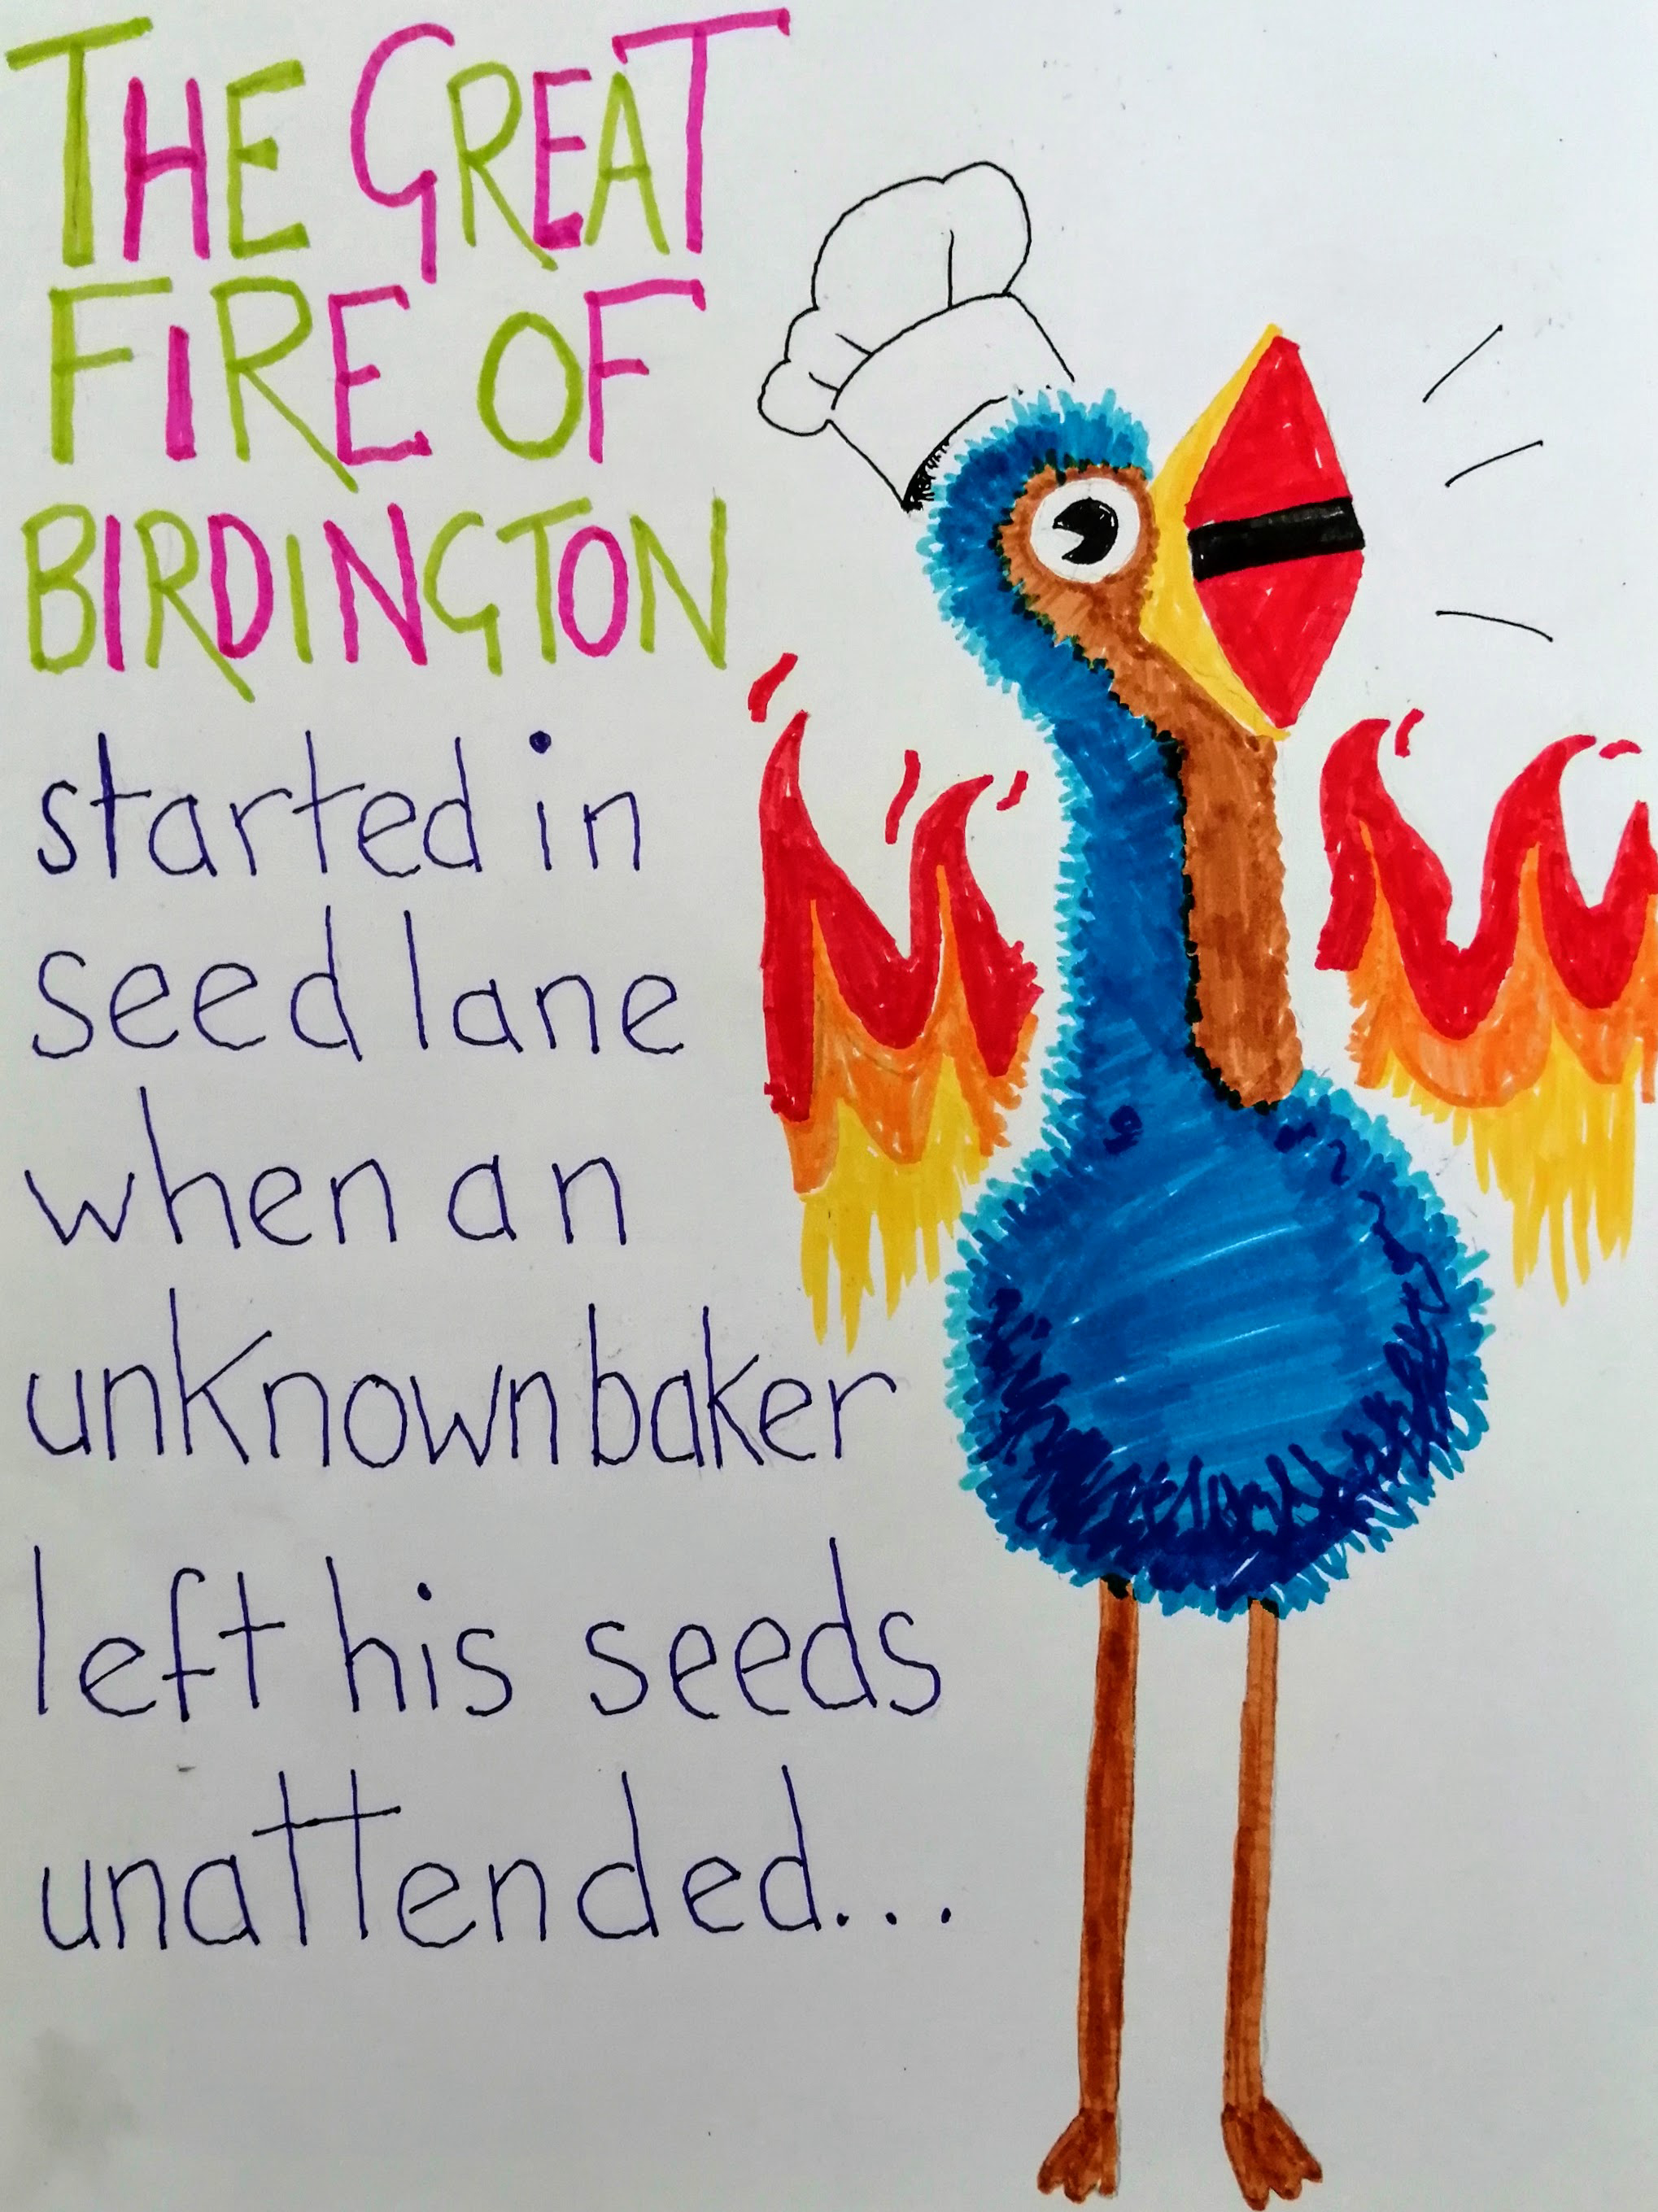 THE GREAT
FIRE OF
BIRDINGTON
started in
seed lane
when an
unknown baker
left his seeds
unattended...